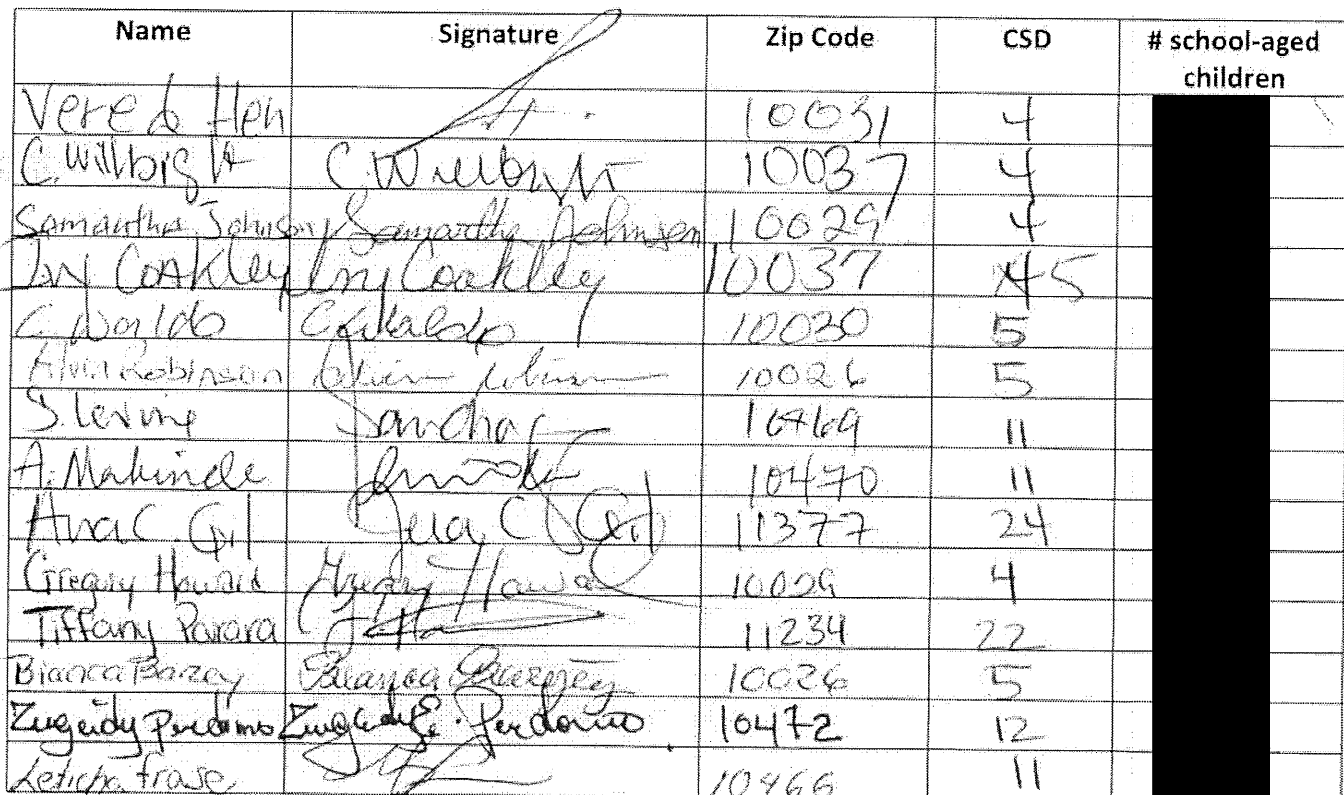 Name Signature Zip Code CSD # school-aged children
Vered Hen 10031 4
C. Willbight C. Willbight 10037 4
Samantha Johnson Samantha Johnson 10029 4
Coakley Coakley 10037 5
C. Waldo C. Waldo 10030 5
Alvin Robinson Alvin Robinson 10026 5
S. Levine 10469 11
A. Makinde 10470 11
Ana C. Gil Ana C. Gil 11377 24
Gregory Howard Gregory Howard 10029 4
Tiffany 11234 22
Bianca Bianca 10026 5
Zugeidy Perdomo Zugeidy E. Perdomo 10472 12
Leticha frase 10466 11